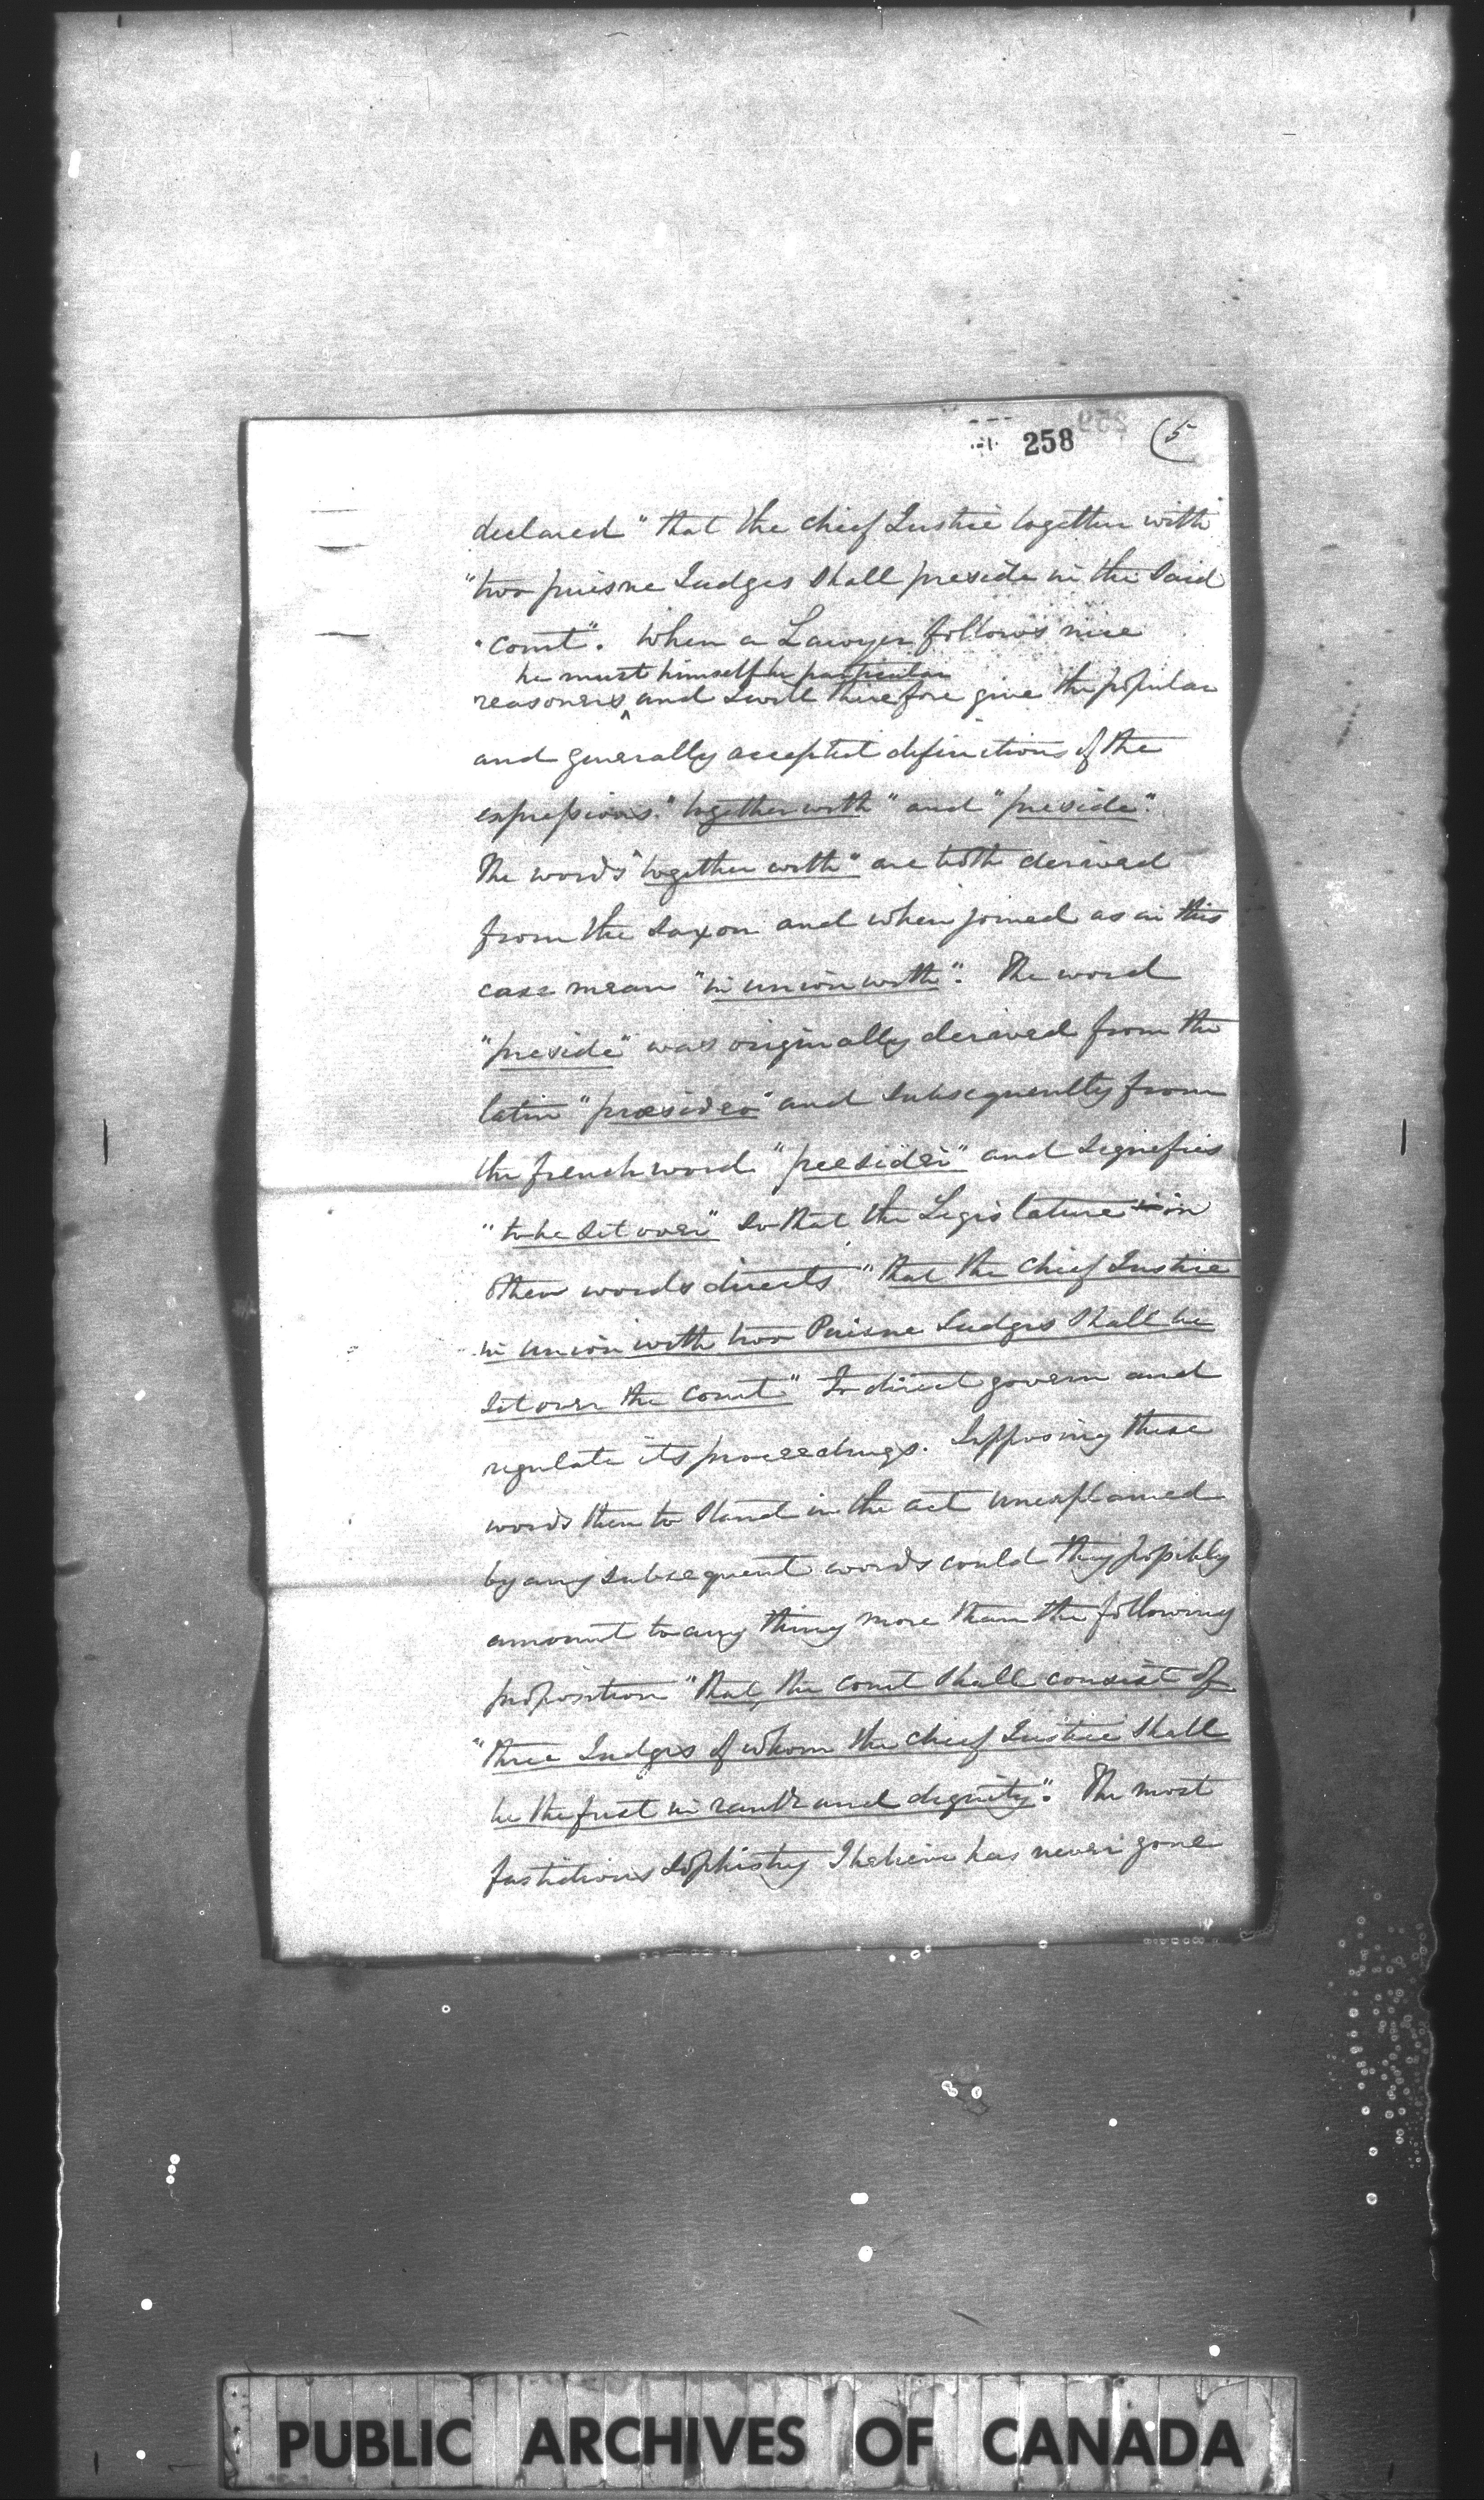 258
(5
declared "that the chief Justice together with
"two puisne Judges shall preside in the said
"court". When a Lawyer follows nice
he must himself be particular
reasoners and I will therefore give the popular
and generally accepted definitions of the
expressions "together with" and "preside".
The words "together with" are both derived
from the Saxon and when joined as in this
case mean "in union with". The word
"preside" was originally derived from the
latin "præsideo" and subsequently from
the french word "presider" and signifies
"to be set over" so that the Legislature in
other words directs "that the chief Justice
in union with two Puisne Judges shall be
set over the court" To direct govern and
regulate its proceedings. Supposing these
words then to stand in the act unexplained
by any subsequent words could they possibly
amount to any thing more than the following
proposition "that, the court shall consist of
"three Judges of whom the chief Justice shall
be the first in rank and dignity". The most
fastidious sophistry I believe has never gone
PUBLIC ARCHIVES OF CANADA